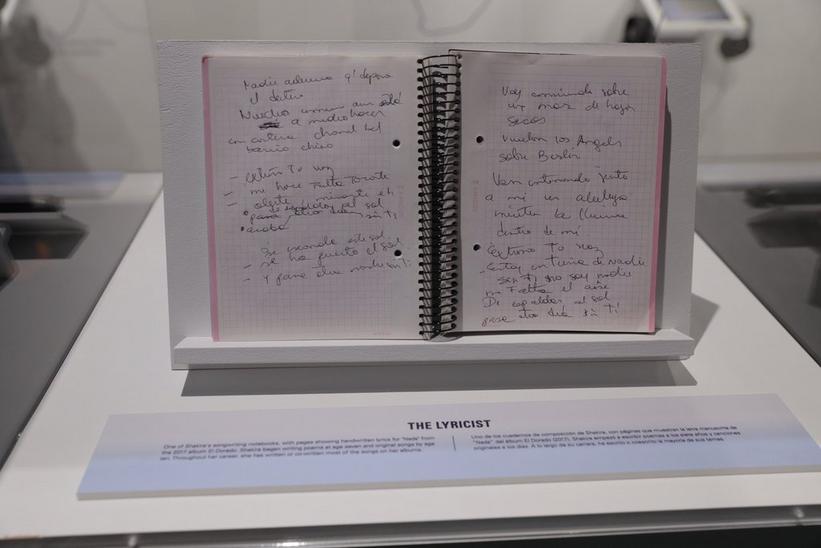 Nadie adivina q' depara
el destino
a medio hacer
con cartera chanel del
barrio chino
- Extraño tu voz
- me hace falta
de espaldas al sol
pasa otro día sin ti
- Se esconde el sol
- se ha puesto el sol
- Y pasa otra noche sin ti
Voy caminando sobre
un mar de hojas
secas
Vuelan los Angels
sobre Berlin
Van entonando junto
a mi un aleluya
mientras la lluvia
dentro de mi
Extraño tu voz
Estoy en tierra de nadie
sin ti no soy nadie
me Falta el aire
De espaldas al sol
pasa otro día sin ti
THE LYRICIST
One of Shakira's songwriting notebooks, with pages showing handwritten lyrics for "Nada" from
the 2017 album El Dorado. Shakira began writing poems at age seven and original songs by age
ten. Throughout her career, she has written or co-written most of the songs on her albums.
Uno de los cuadernos de composición de Shakira, con páginas que muestran la letra manuscrita de
"Nada" del álbum El Dorado (2017). Shakira empezó a escribir poemas a los siete años y canciones
originales a los diez. A lo largo de su carrera, ha escrito o coescrito la mayoría de sus temas.